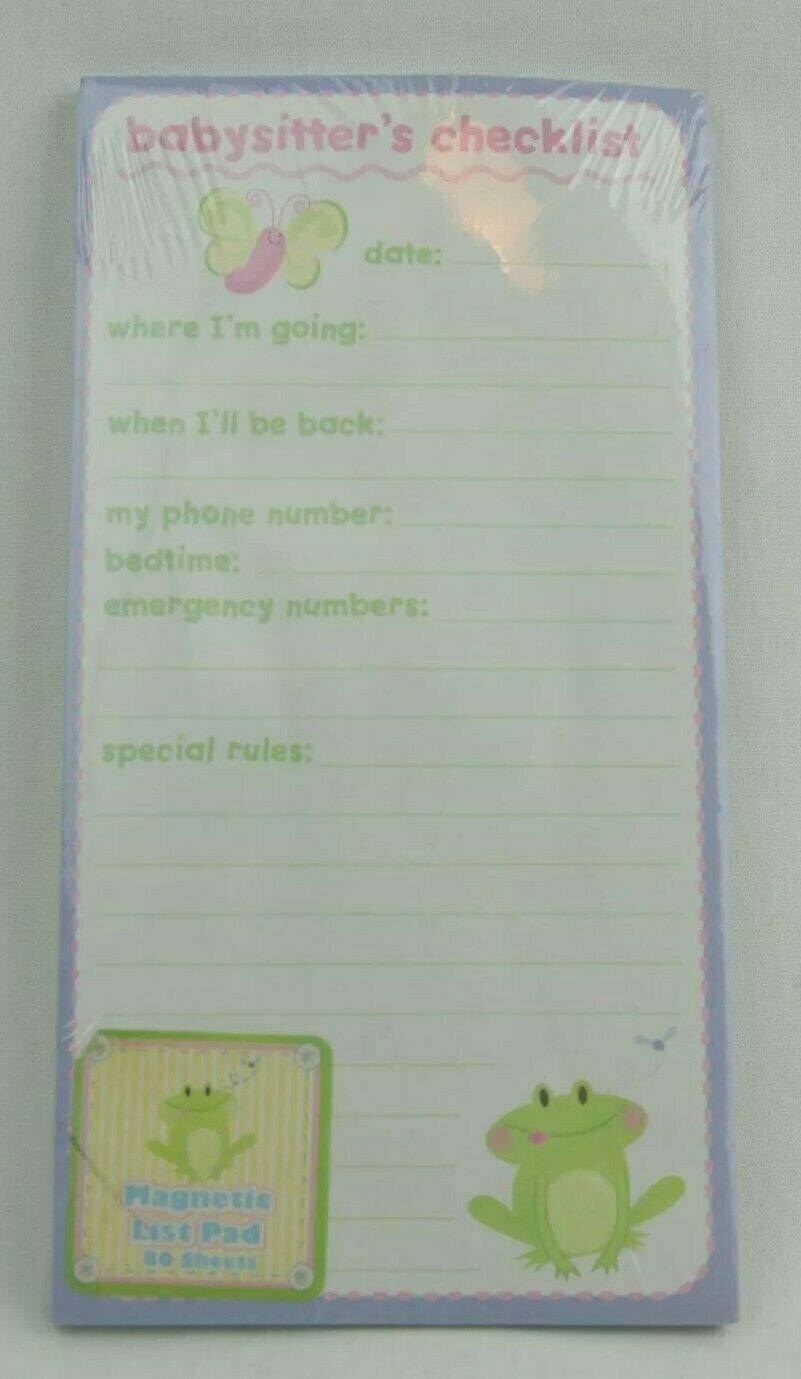 babysitter's checklist
date:
where I'm going:
when I'll be back:
my phone number:
bedtime:
emergency numbers:
special rules:
Magnetic
List Pad
80 Sheets